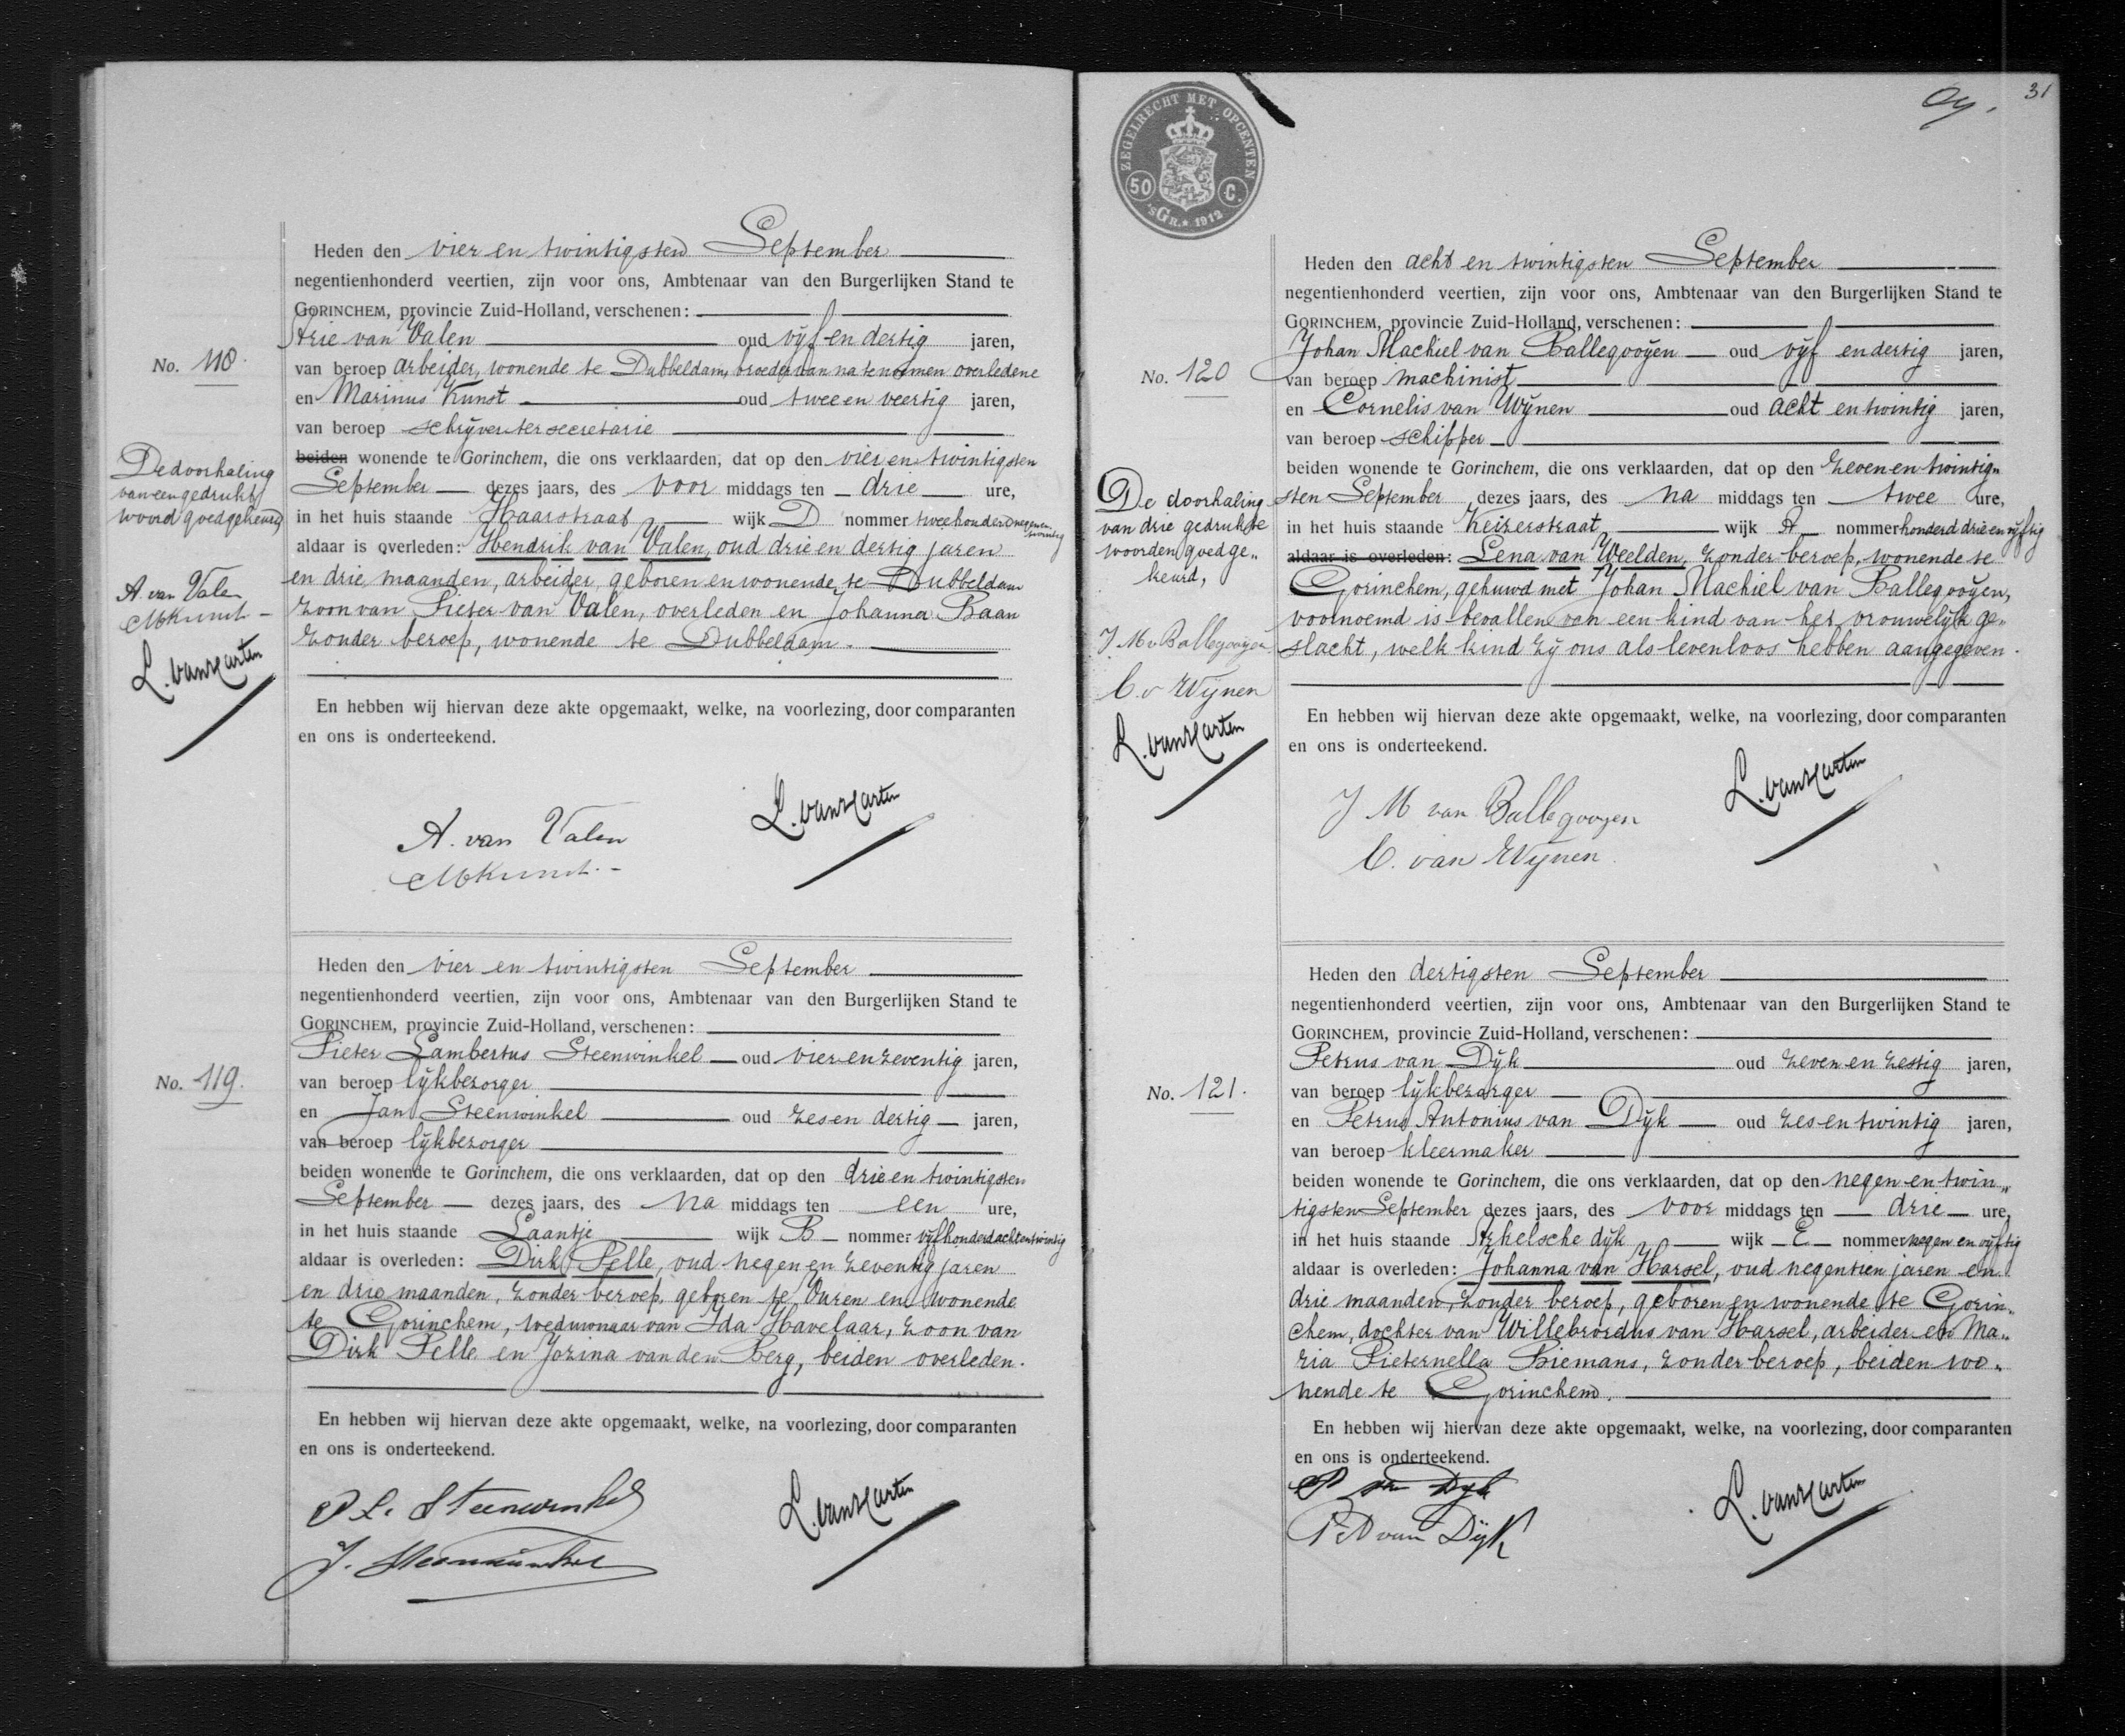 Heden den vier en twintigsten September
negentienhonderd veertien, zijn voor ons, Ambtenaar van den Burgerlijken Stand te
GORINCHEM, provincie Zuid-Holland, verschenen:
Arie van Valen oud vijf en dertig jaren,
No. 118.
van beroep arbeider, wonende te Dubbeldam, broeder van na te noemen overledene
en Marinus Kunst oud twee en veertig jaren,
van beroep schrijver ter secretarie
beiden wonende te Gorinchem, die ons verklaarden, dat op den vier en twintigsten
September dezes jaars, des voor middags ten drie ure,
in het huis staande Haarstraat wijk D nommer tweehonderd negenen twintig
aldaar is overleden: Hendrik van Valen, oud drie en dertig jaren
en drie maanden, arbeider, geboren en wonende te Dubbeldam
zoon van Pieter van Valen, overleden en Johanna Baan
zonder beroep, wonende te Dubbeldam.
De doorhaling
van een gedrukt
woord goedgekeurd,
A. van Valen
MKunst
L. van Marten
En hebben wij hiervan deze akte opgemaakt, welke, na voorlezing, door comparanten
en ons is onderteekend.
A. van Valen
MKunst.
L. van Marten
Heden den vier en twintigsten September
negentienhonderd veertien, zijn voor ons, Ambtenaar van den Burgerlijken Stand te
GORINCHEM, provincie Zuid-Holland, verschenen:
Pieter Lambertus Steenwinkel oud vier en zeventig jaren,
No. 119.
van beroep lijkbezorger
en Jan Steenwinkel oud zes en dertig jaren,
van beroep lijkbezorger
beiden wonende te Gorinchem, die ons verklaarden, dat op den drie en twintigsten
September dezes jaars, des na middags ten een ure,
in het huis staande Laantje wijk B nommer vijfhonderd acht en twintig
aldaar is overleden: Dirk Pelle, oud negen en zeventig jaren
en drie maanden, zonder beroep, geboren te Vuren en wonende
te Gorinchem, weduwnaar van Ida Havelaar, zoon van
Dirk Pelle en Jozina van den Berg, beiden overleden.
En hebben wij hiervan deze akte opgemaakt, welke, na voorlezing, door comparanten
en ons is onderteekend.
P. L. Steenwinkel
J. Steenwinkel
L. van Marten
31
ZEGELRECHT MET OPCENTEN
50 C.
'sGR. * 1912
Heden den acht en twintigsten September
negentienhonderd veertien, zijn voor ons, Ambtenaar van den Burgerlijken Stand te
GORINCHEM, provincie Zuid-Holland, verschenen:
Johan Machiel van Ballegooijen oud vijf en dertig jaren,
No. 120
van beroep machinist
en Cornelis van Wijnen oud acht en twintig jaren,
van beroep schipper
beiden wonende te Gorinchem, die ons verklaarden, dat op den zeven en twintig„
sten September dezes jaars, des na middags ten twee ure,
in het huis staande Keizerstraat wijk A nommer honderd drie en vijftig
aldaar is overleden: Lena van Weelden, zonder beroep, wonende te
Gorinchem, gehuwd met Johan Machiel van Ballegooijen,
voornoemd is bevallen van een kind van het vrouwelijk ge„
slacht, welk kind zij ons als levenloos hebben aangegeven.
De doorhaling
van drie gedrukte
woorden goedge„
keurd,
J M v Ballegooijen
C. v Wijnen
L. van Marten
En hebben wij hiervan deze akte opgemaakt, welke, na voorlezing, door comparanten
en ons is onderteekend.
J M van Ballegooyen
C. van Wijnen.
L. van Marten
Heden den dertigsten September
negentienhonderd veertien, zijn voor ons, Ambtenaar van den Burgerlijken Stand te
GORINCHEM, provincie Zuid-Holland, verschenen:
Petrus van Dijk oud zeven en zestig jaren,
No. 121.
van beroep lijkbezorger
en Petrus Antonius van Dijk oud zes en twintig jaren,
van beroep kleermaker
beiden wonende te Gorinchem, die ons verklaarden, dat op den negen en twin„
tigsten September dezes jaars, des voor middags ten drie ure,
in het huis staande Arkelsche dijk wijk E nommer negen en vijftig
aldaar is overleden: Johanna van Harsel, oud negentien jaren en
drie maanden, zonder beroep, geboren en wonende te Gorin„
chem, dochter van Willebrordus van Harsel, arbeider en Ma„
ria Pieternella Biemans, zonder beroep, beiden wo„
nende te Gorinchem.
En hebben wij hiervan deze akte opgemaakt, welke, na voorlezing, door comparanten
en ons is onderteekend.
P van Dijk
P A van Dijk
L. van Marten